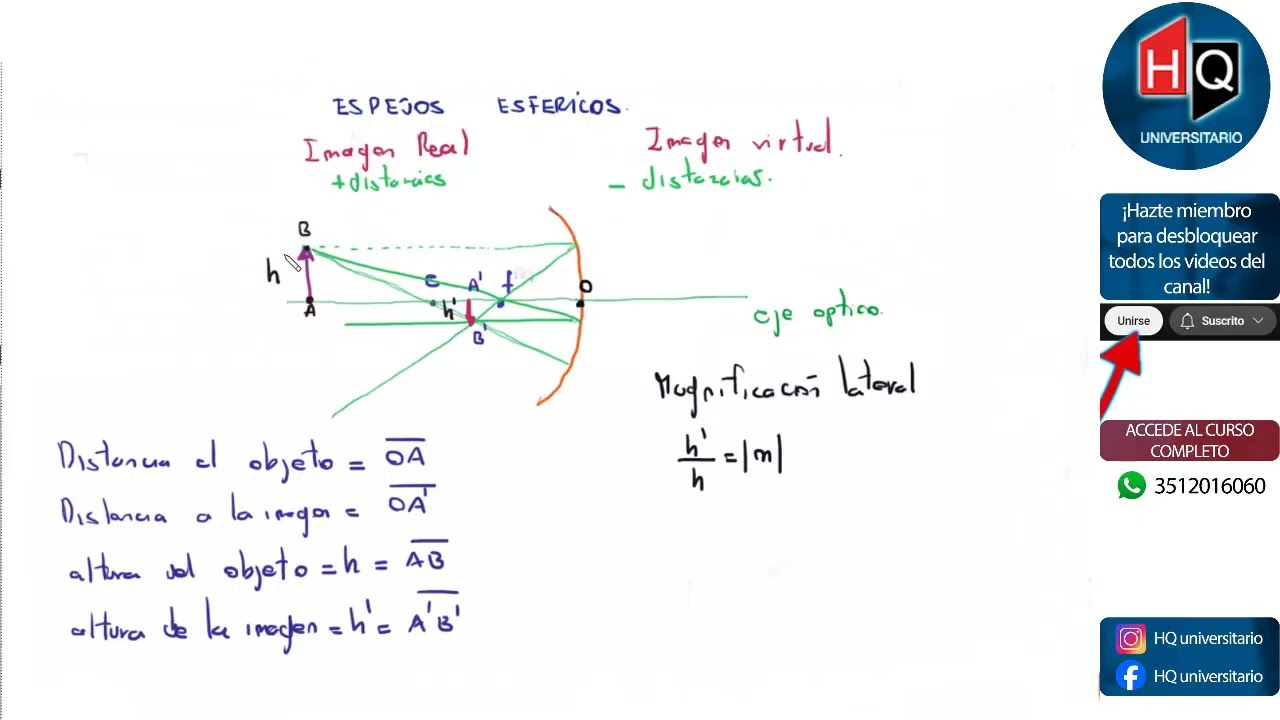 ESPEJOS ESFERICOS.
Imagen Real
+ distancias
Imagen virtual.
- distancias.
B
h
A
C
A'
f
O
h'
B'
eje optico.
Magnificación lateral
h'/h = |m|
Distancia al objeto = OA
Distancia a la imagen = OA'
altura del objeto = h = AB
altura de la imagen = h' = A'B'
HQ
UNIVERSITARIO
¡Hazte miembro
para desbloquear
todos los videos del
canal!
Unirse
Suscrito
ACCEDE AL CURSO
COMPLETO
3512016060
HQ universitario
HQ universitario